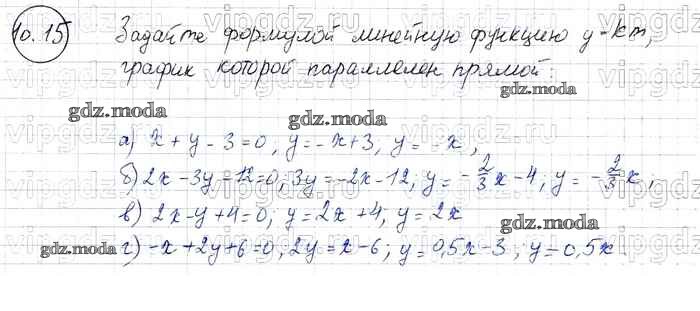 10.15 Задайте формулой линейную функцию y=kx,
график которой параллелен прямой:
gdz.moda gdz.moda
а) x + y - 3 = 0, y = -x + 3, y = -x,
gdz.moda
б) 2x - 3y - 12 = 0; 3y = -2x - 12, y = -2/3 x - 4; y = -2/3 x;
в) 2x - y + 4 = 0; y = 2x + 4; y = 2x
gdz.moda
gdz.moda г) -x + 2y + 6 = 0, 2y = x - 6; y = 0,5x - 3; y = 0,5x